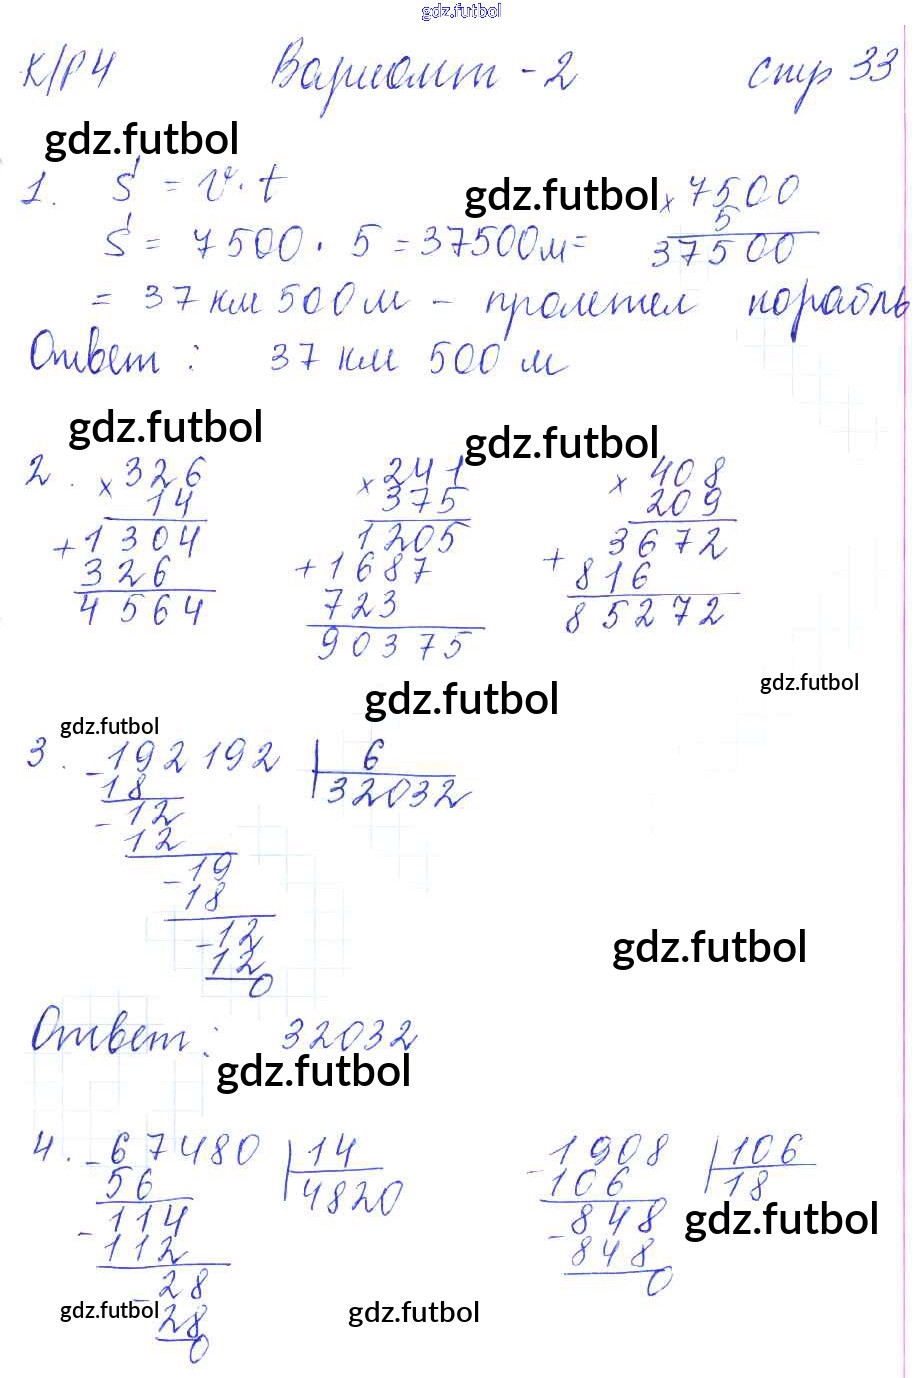 gdz.futbol
К/Р 4 Вариант - 2 стр 33
gdz.futbol
1. S = v · t gdz.futbol × 7500
5
S = 7500 · 5 = 37500 м = 37500
= 37 км 500 м - пролетел корабль
Ответ : 37 км 500 м
gdz.futbol gdz.futbol
2. × 326 × 241 × 408
14 375 209
+ 1304 1205 + 3672
326 + 1687 816
4564 723 85272
90375
gdz.futbol gdz.futbol
gdz.futbol
3. - 192192 | 6
18 32032
- 12
12
- 19
18
- 12 gdz.futbol
12
0
Ответ : 32032
gdz.futbol
4. - 67480 | 14 - 1908 | 106
56 4820 106 18
- 114 - 848 gdz.futbol
112 848
- 28 0
gdz.futbol 28 gdz.futbol
0